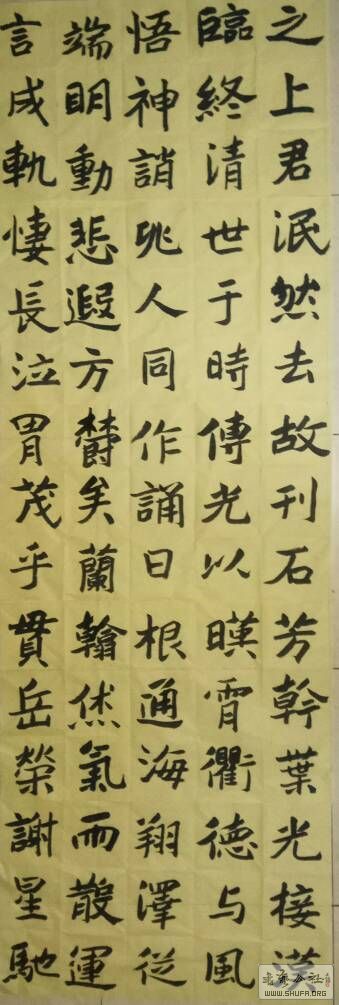 之上君泯然去故刊石芳幹葉光接漢
臨終清世于時傳光以暎霄衢德与風
悟神誚兆人同作誦曰根通海翔澤從
端明動悲遐方欝矣蘭翰烋氣而散運
言成軌悽長泣胃茂乎貫岳榮謝星馳
WWW.SHUFA.ORG